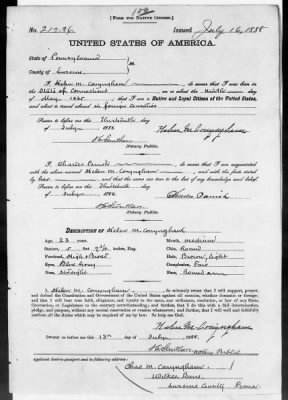 [FORM FOR NATIVE CITIZEN.]
No. 21236 Issued July 16, 1888
UNITED STATES OF AMERICA.
State of Pennsylvania
County of Luzerne
I, Helen M. Conyngham, do swear that I was born in
the State of Connecticut, on or about the day
of May 1865; that I am a Native and Loyal Citizen of the United States,
and about to travel abroad in foreign countries
Sworn to before me this Thirteenth day
of July 1888
Helen M. Conyngham
Notary Public.
I, Charles Parrish, do swear that I am acquainted
with the above-named Helen M. Conyngham, and with the facts stated
by her, and that the same are true to the best of my knowledge and belief.
Sworn to before me this Thirteenth day
of July 1888
Charles Parrish
Notary Public.
DESCRIPTION OF Helen M. Conyngham
Age: 23 years. Mouth: medium
Stature: 5 feet inches, Eng. Chin: Round
Forehead: High & Broad Hair: Brown, light
Eyes: Blue Gray Complexion: Fair
Nose: straight Face:
I, Helen M. Conyngham, do solemnly swear that I will support,
protect, and defend the Constitution and Government of the United States against all enemies, whether domestic or foreign; and
that I will bear true faith, allegiance, and loyalty to the same, any ordinance, resolution, or law of any State,
Convention, or Legislature to the contrary notwithstanding; and further, that I do this with a full determination,
pledge, and purpose, without any mental reservation or evasion whatsoever; and further, that I will well and faithfully
perform all the duties which may be required of me by law. So help me God.
Helen M. Conyngham
Sworn to before me this 13th day of July 1888.
Notary Public
Applicant desires passport sent to following address:
Chas M. Conyngham
Wilkes Barre
Luzerne County Penna